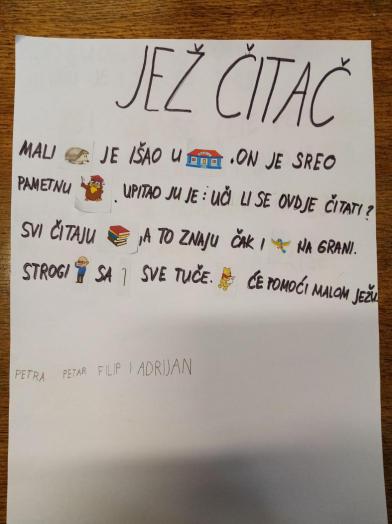 JEŽ ČITAČ
MALI JE IŠAO U . ON JE SREO
PAMETNU . UPITAO JU JE : UČI LI SE OVDJE ČITATI ?
SVI ČITAJU , A TO ZNAJU ČAK I NA GRANI.
STROGI SA SVE TUČE. ĆE POMOĆI MALOM JEŽU.
PETRA PETAR FILIP I ADRIJAN